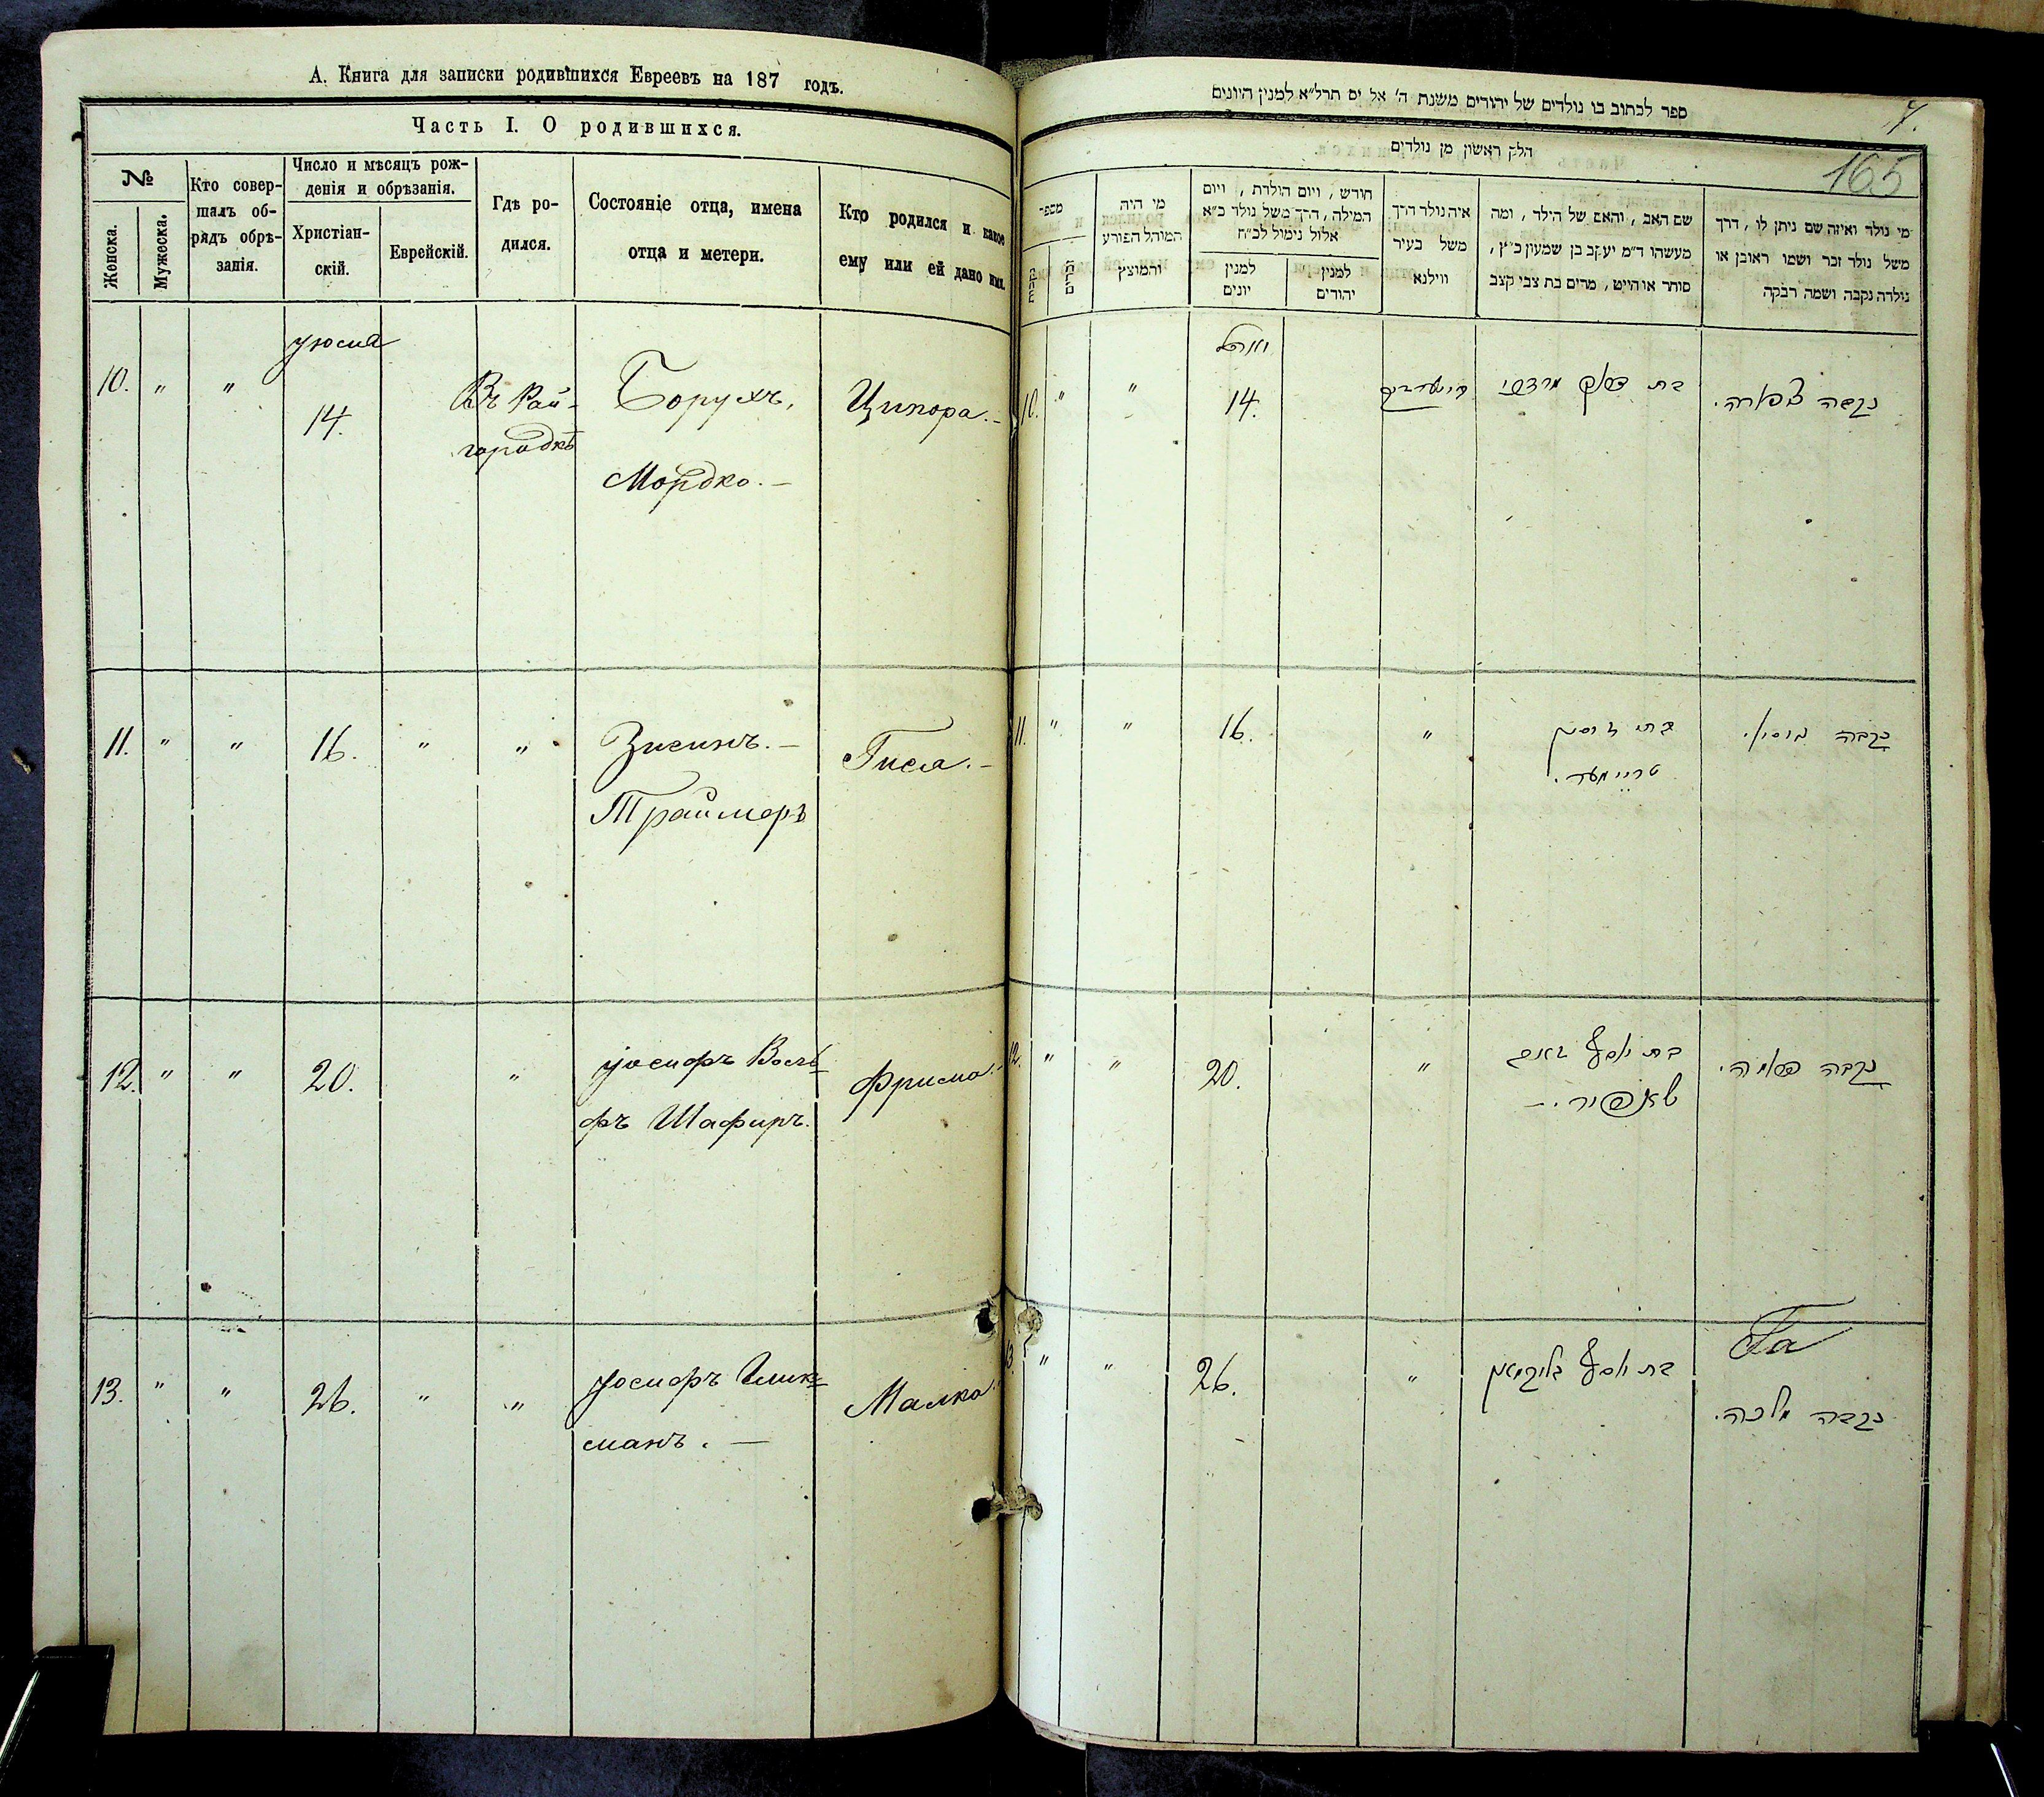 А. Книга для записки родившихся Евреевъ на 187 годъ.
Часть I. О родившихся.
№
Женска.
Мужеска.
Кто совер-
шалъ об-
рядъ обрѣ-
занія.
Число и мѣсяцъ рож-
денія и обрѣзанія.
Христіан-
скій.
Еврейскій.
Гдѣ ро-
дился.
Состояніе отца, имена
отца и метери.
Кто родился и какое
ему или ей дано имя.
10. " "
14.
Въ Рай-
городкѣ
Борухъ,
Мордко.-
Ципора.-
11. " " 16. " "
Зисинъ.-
Траймеръ
Гися.-
12. " " 20. "
Іосифъ Воль
фъ Шафиръ.
Фрима.
13. " " 26. " "
Іосифъ Глик
сманъ. -
Малка
ספר לכתוב בו נולדים של יהודים משנת ה' אל ים תרל״א למנין היונים
7.
165
חלק ראשון מן נולדים
מספר
נקבות
זכרים
מי היה
המוהל הפורע
והמוצץ
חודש, ויום הולדת, ויום
המילה, דרך משל נולד כ״א
אלול נימול לכ״ח
למנין
יונים
למנין
יהודים
איה נולד דרך
משל בעיר
ווילנא
שם האב, והאם של הילד, ומה
מעשהו ד״מ יעקב בן שמעון כ״ץ,
סוחר או הייט, מרים בת צבי קצב
מי נולד ואיזה שם ניתן לו, דרך
משל נולד זכר ושמו ראובן או
נולדה נקבה ושמה רבקה
10. " " 14.
נקבה צפורה.
11. " " 16. "
טריימער.
נקבה גיסיא.
12. " " 20. "
בת יוסף וואלף
שאפיר. -
נקבה פרומה.
13. " " 26. "
בת יוסף גליקסמאן
נקבה מלכה.